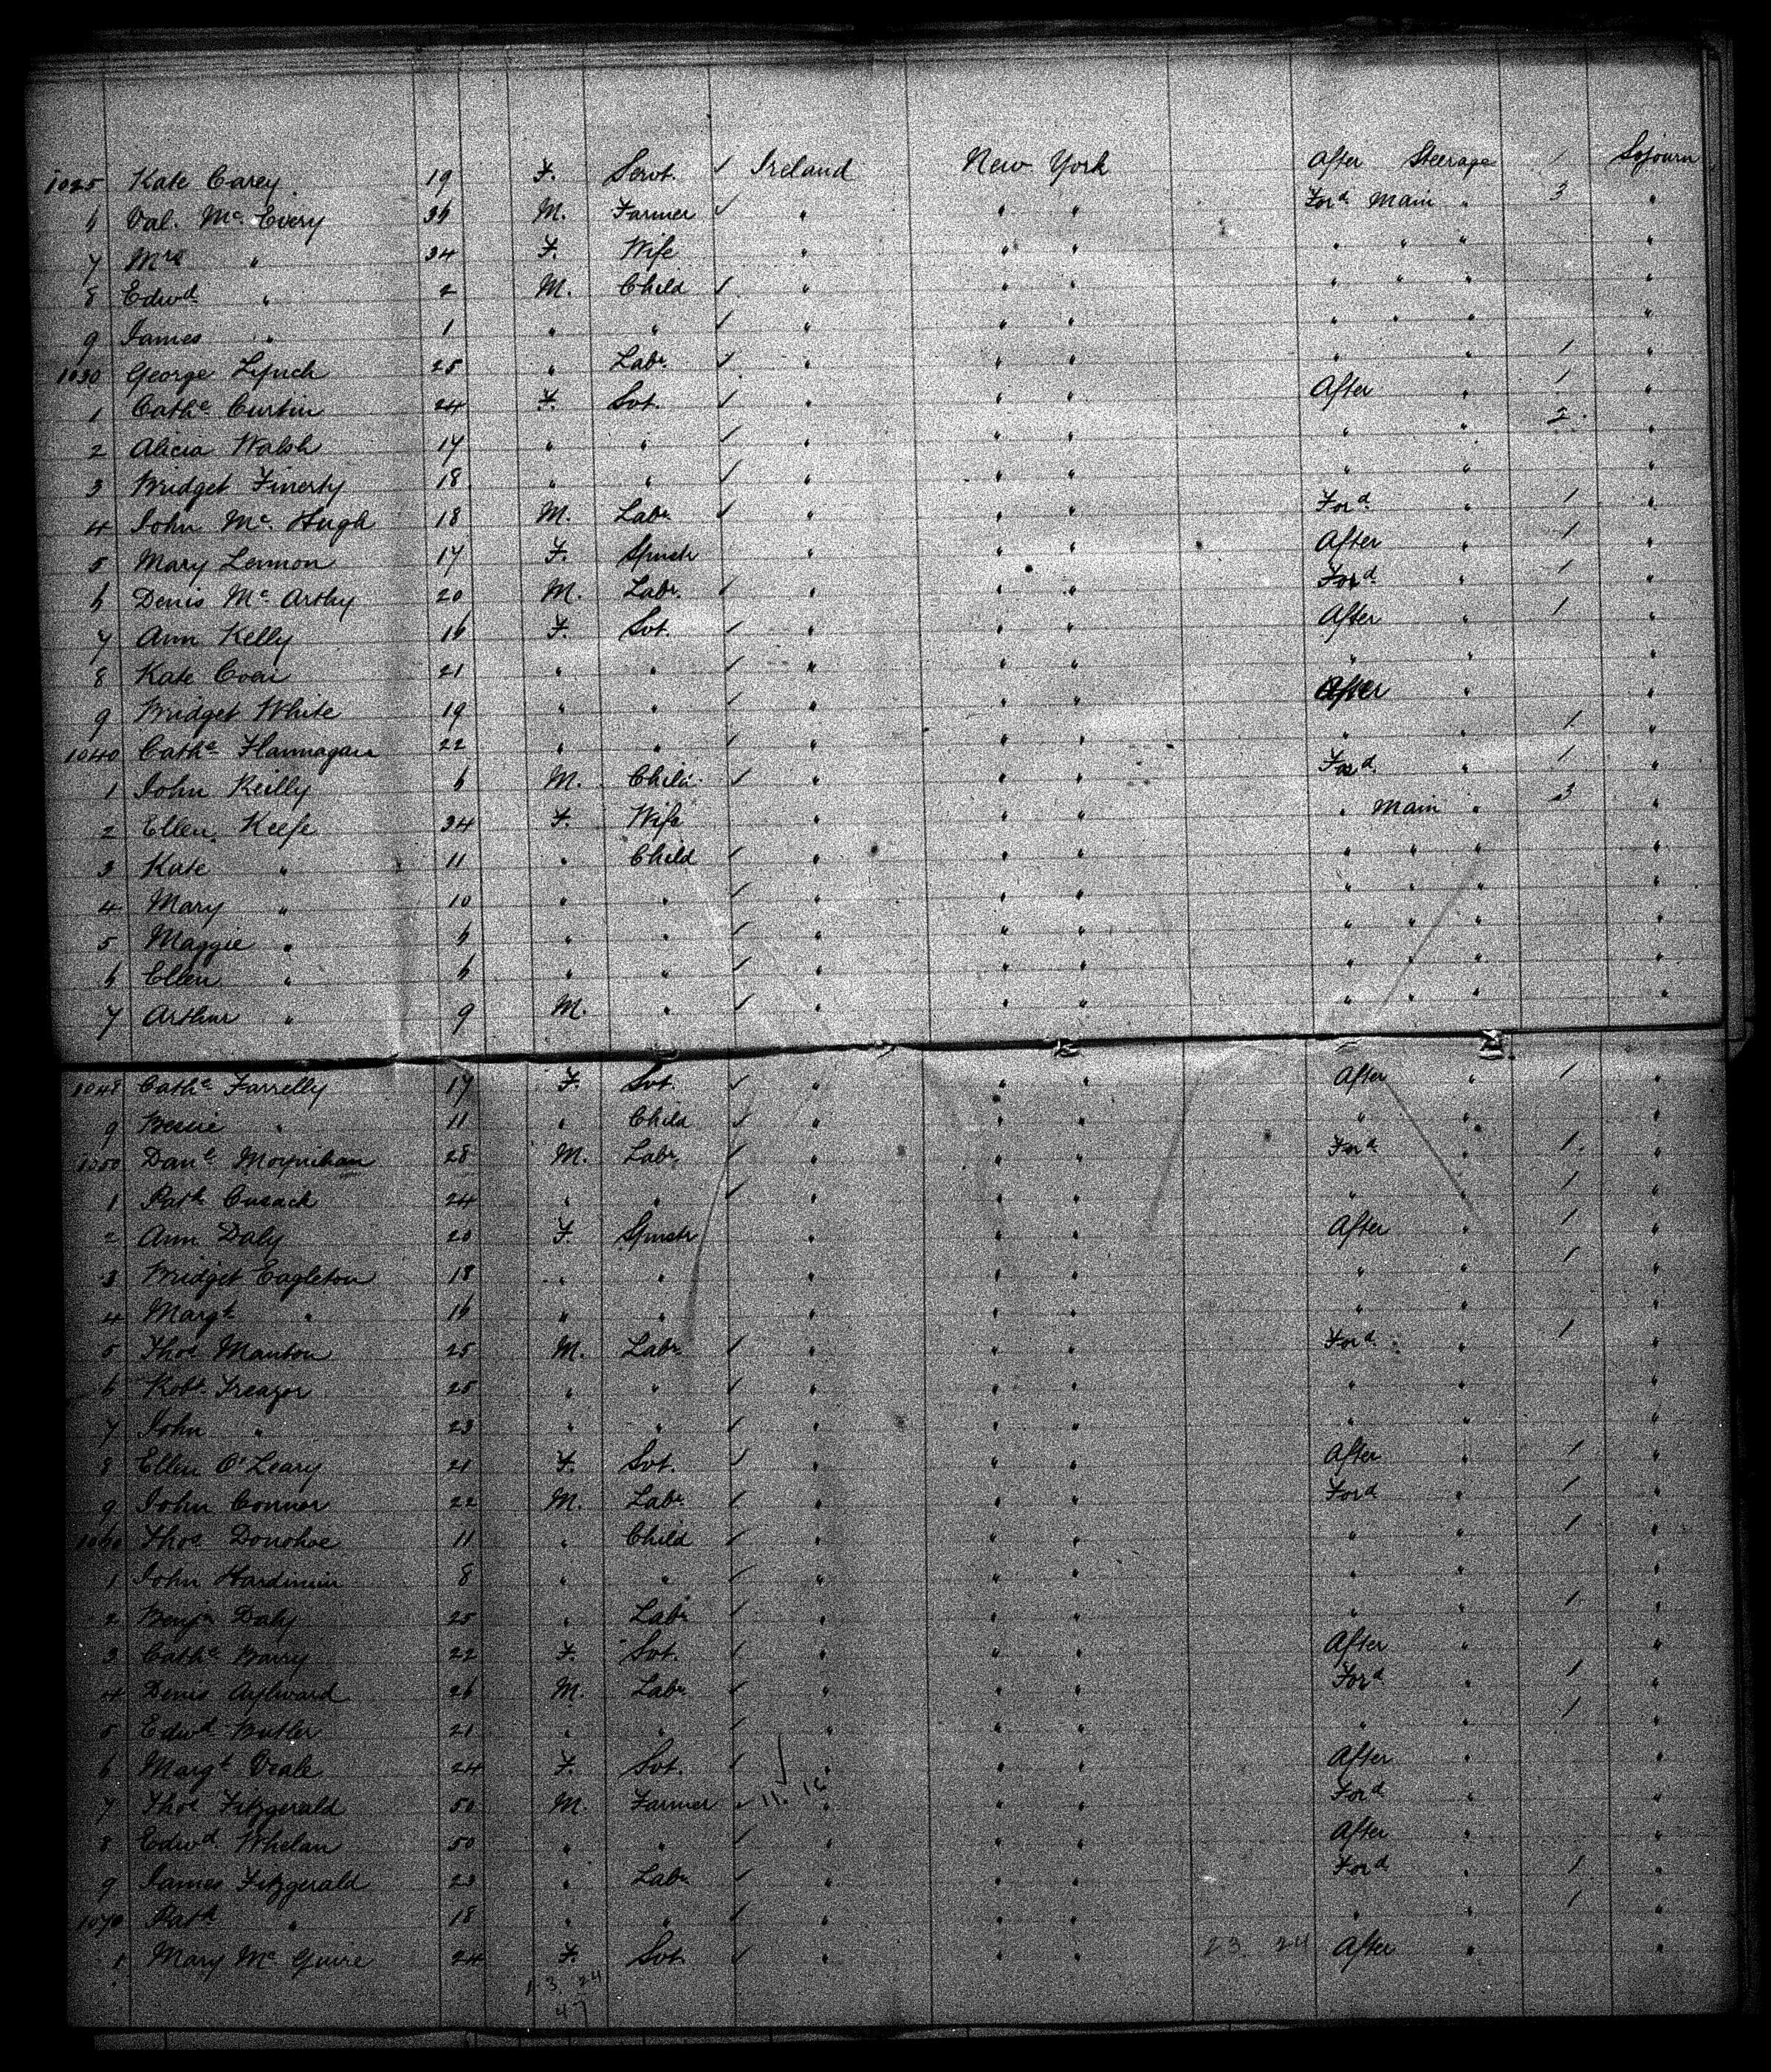 1025 Kate Carey 19 F. Servt. ✓ Ireland New York After Steerage 1 Sojourn
6 Val. Mc. Every 36 M. Farmer ✓ " " " Ford. Main " 3 "
7 Mrs " 34 F. Wife " " " " " " "
8 Edwd " 2 M. Child ✓ " " " " " " "
9 James " 1 " " ✓ " " " " " " "
1030 George Lynch 25 " Labr. ✓ " " " " " 1 "
1 Cathe Curtin 24 F. Svt. ✓ " " " After " 1 "
2 Alicia Walsh 17 " " ✓ " " " " " 2 "
3 Bridget Finerty 18 " " ✓ " " " " " "
4 John Mc. Hugh 18 M. Labr. ✓ " " " Ford. " 1 "
5 Mary Lennon 17 F. Spinstr " " " After " 1 "
6 Denis Mc. Arthy 20 M. Labr. ✓ " " " Ford. " 1 "
7 Ann Kelly 16 F. Svt. ✓ " " " After " 1 "
8 Kate 21 " " ✓ " " " " " "
9 Bridget White 19 " " ✓ " " " After " "
1040 Cathe Flannagan 22 " " ✓ " " " " " 1 "
1 John Reilly 6 M. Child ✓ " " " Ford. " 1 "
2 Ellen Keefe 34 F. Wife " " " " Main " 3 "
3 Kate " 11 " Child ✓ " " " " " " "
4 Mary " 10 " " ✓ " " " " " " "
5 Maggie " 6 " " ✓ " " " " " " "
6 Ellen " 6 " " ✓ " " " " " " "
7 Arthur " 9 M. " ✓ " " " " " " "
1048 Cathe Farrelly 17 F. Svt. ✓ " " " After " 1 "
9 Bessie " 11 " Child ✓ " " " " " "
1050 Danl. Moynihan 28 M. Labr. ✓ " " " Ford " 1 "
1 Patk Cusack 24 " " ✓ " " " " " 1 "
2 Ann Daly 20 F. Spinstr " " " After " 1 "
3 Bridget Eagleton 18 " " " " " " " 1 "
4 Margt " 16 " " " " " " " "
5 Thos Manton 25 M. Labr. ✓ " " " Ford. " 1 "
6 Robt. Treazor 25 " " ✓ " " " " " "
7 John " 23 " " ✓ " " " " " "
8 Ellen O'Leary 21 F. Svt. ✓ " " " After " 1 "
9 John Connor 22 M. Labr. ✓ " " " Ford " 1 "
1060 Thos Donohoe 11 " Child ✓ " " " " " 1 "
1 John Hardimin 8 " " ✓ " " " " " "
2 Benjn Daly 25 " Labr ✓ " " " " " 1 "
3 Cathe Barry 22 F. Svt. ✓ " " " After " "
4 Denis Aylward 26 M. Labr. ✓ " " " Ford " 1 "
5 Edwd. Butler 21 " " ✓ " " " " " 1 "
6 Margt Veale 24 F. Svt. ✓ " " " After " "
7 Thos Fitzgerald 50 M. Farmer ✓ " " " Ford " "
8 Edwd. Whelan 50 " " ✓ " " " After " "
9 James Fitzgerald 23 " Labr. ✓ " " " Ford " 1 "
1070 Patk " 18 " " ✓ " " " " " 1 "
1 Mary Mc Guire 24 F. Svt. ✓ " " " 23 24 After " "
3 24
47